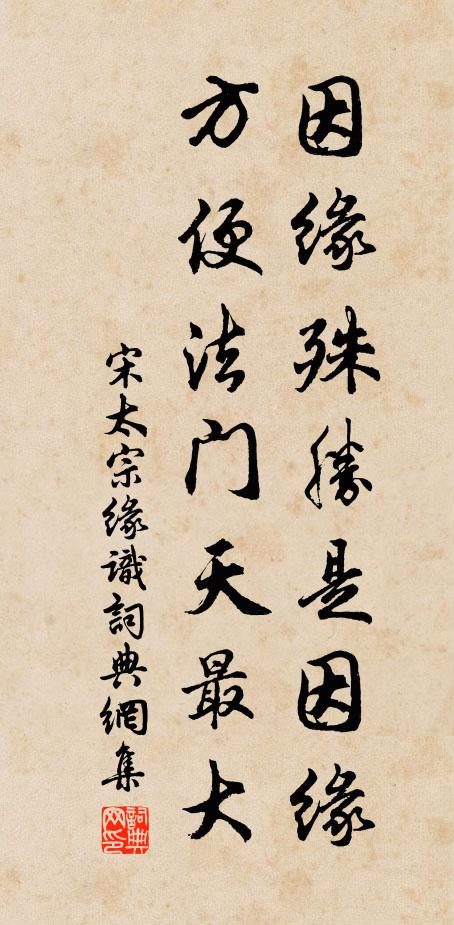 因缘殊勝是因缘
方便法门天最大
宋太宗缘識詞典網集
詞典网印